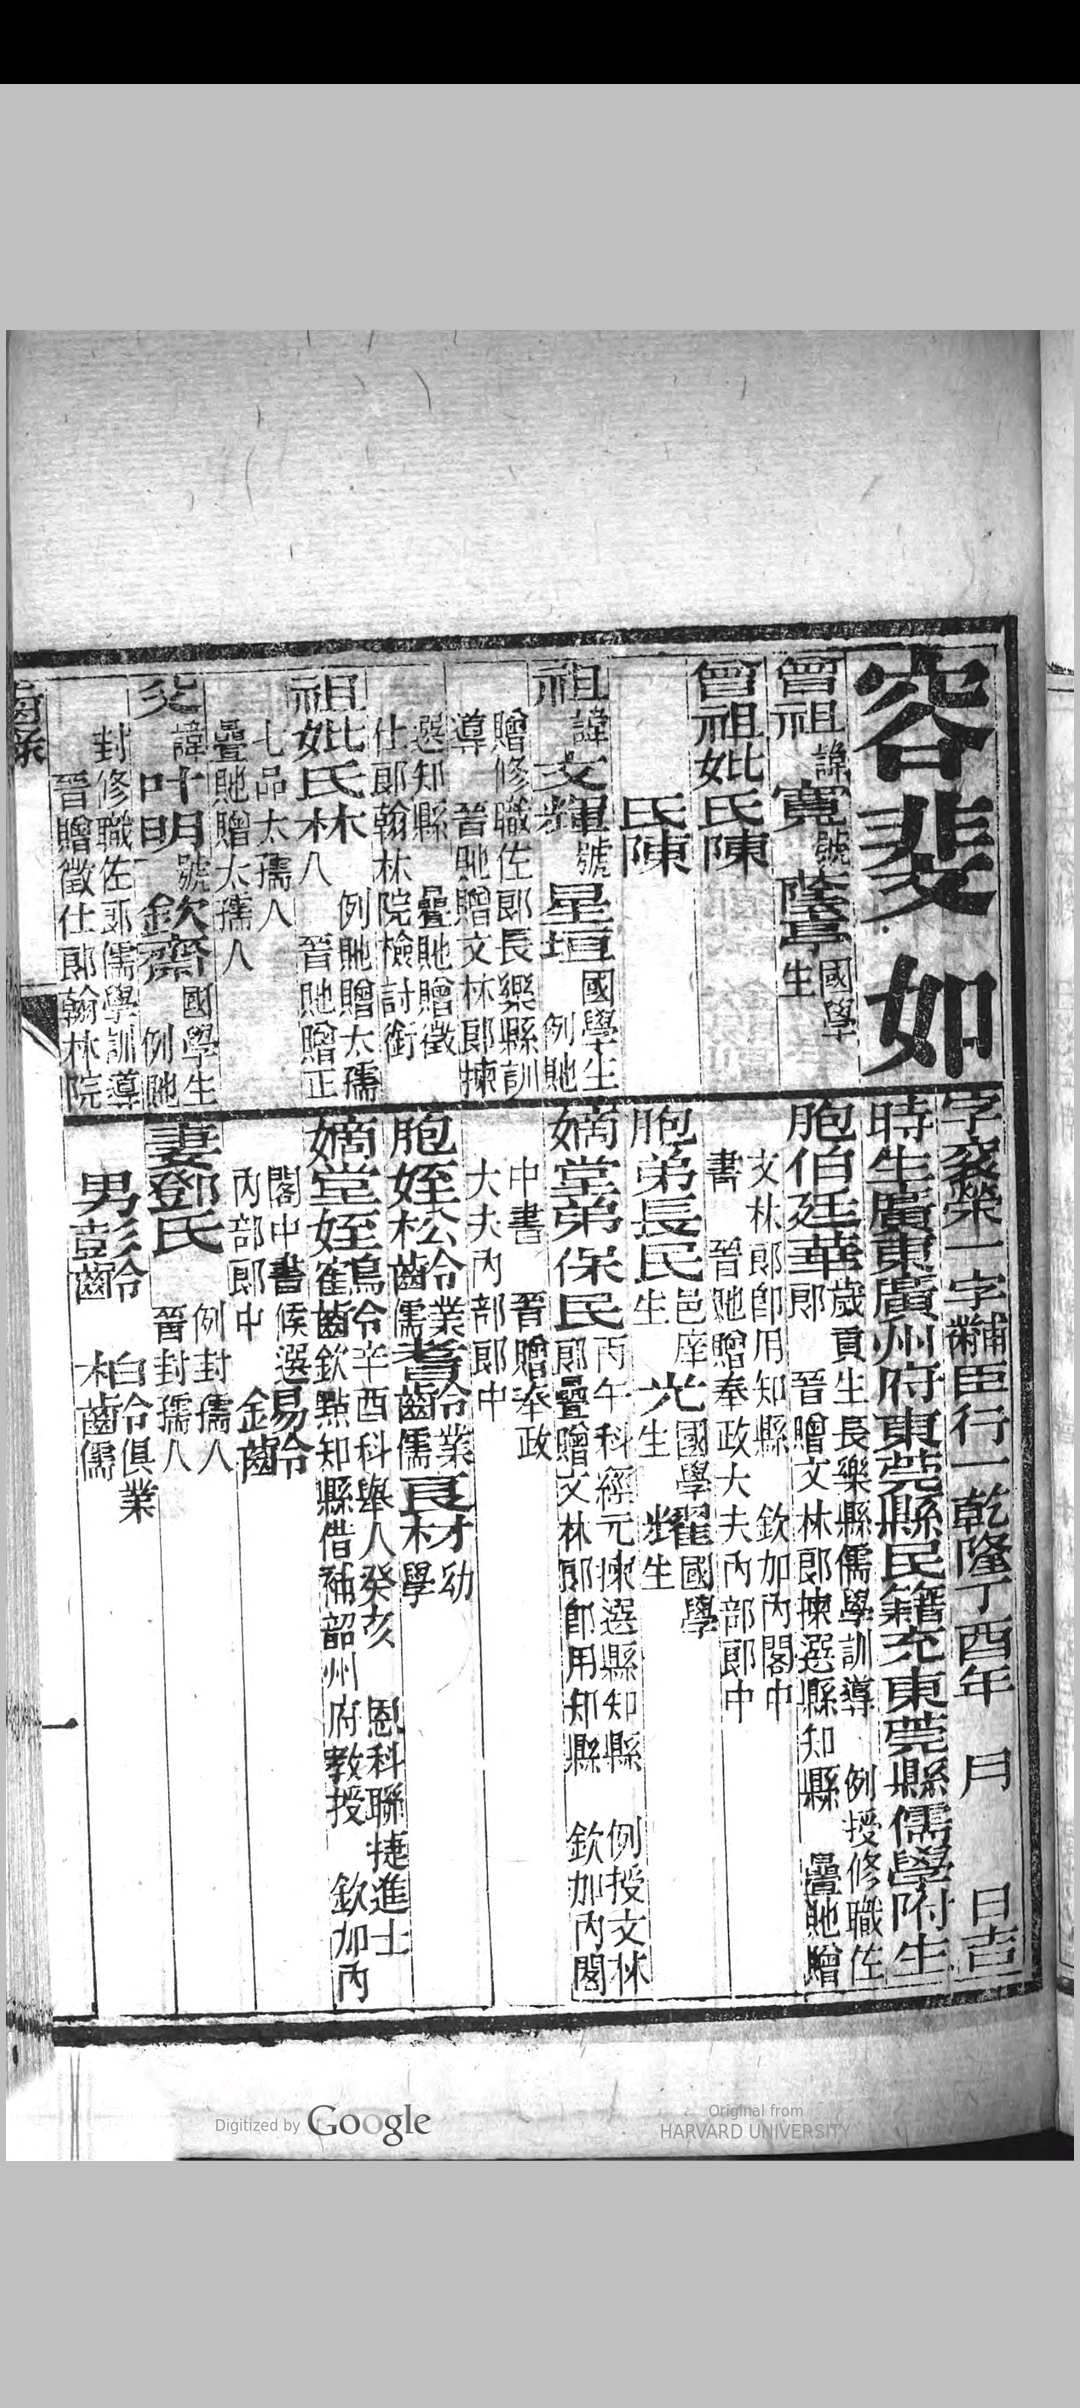 容斐如
字袞榮一字黼臣行一乾隆丁酉年 月 日吉
時生廣東廣州府東莞縣民籍充東莞縣儒學附生
曾祖諱寬號蔭亭國學生
曾祖妣氏陳
氏陳
祖諱文輝號星垣國學生 例貤
贈修職佐郎長樂縣訓
導 晉貤贈文林郎揀
選知縣 疊貤贈徵
仕郎翰林院檢討銜
祖妣氏林 例貤贈太孺
八 晉貤贈正
七品太孺人
疊貤贈太孺人
父諱叶明號欽齋國學生 例貤
封修職佐郎儒學訓導
晉贈徵仕郎翰林院
胞伯廷華歲貢生長樂縣儒學訓導 例授修職佐
郎 晉贈文林郎揀選縣知縣 疊貤贈
文林郎即用知縣 欽加內閣中
書 晉貤贈奉政大夫內部郎中
胞弟長民邑庠生 光國學生 耀國學生
嫡堂弟保民丙午科經元揀選縣知縣 例授文林
郎疊贈文林郎即用知縣 欽加內閣
中書 晉贈奉政
大夫內部郎中
胞姪松齡業儒 耆齡業儒 良材幼學
嫡堂姪鶴齡辛酉科舉人癸亥 恩科聯捷進士
欽點知縣借補韶州府教授 欽加內
閣中書候選
內部郎中 錫齡 錦齡
妻鄧氏 例封孺人
晉封孺人
男彭齡 柏齡俱業儒
齒錄
一
Digitized by Google
Original from
HARVARD UNIVERSITY